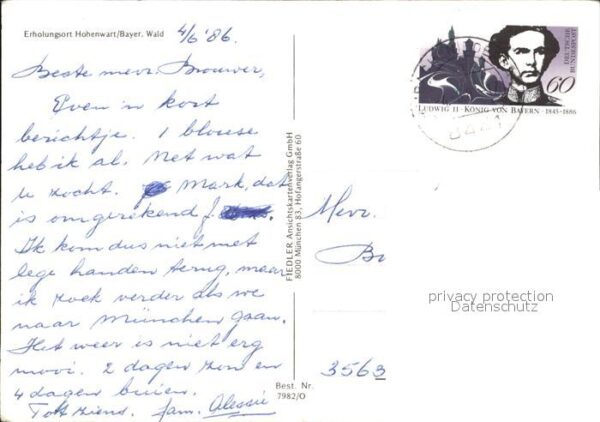 Erholungsort Hohenwart/Bayer. Wald
4/6 '86.
Beste mevr. Brouwer,
Even 'n kort
berichtje. 1 blouse
heb ik al. Net wat
u zocht. Mark, dat
is omgerekend f
Ik kom dus niet met
lege handen terug, maar
ik zoek verder als we
naar München gaan.
Het weer is niet erg
mooi. 2 dagen zon en
4 dagen buien.
Tot ziens. fam.
FIEDLER Ansichtskartenverlag GmbH
8000 München 83, Hofangerstraße 60
Best. Nr.
7982/O
DEUTSCHE
BUNDESPOST
60
LUDWIG II · KÖNIG VON BAYERN · 1845-1886
Mevr.
Br
privacy protection
Datenschutz
3563